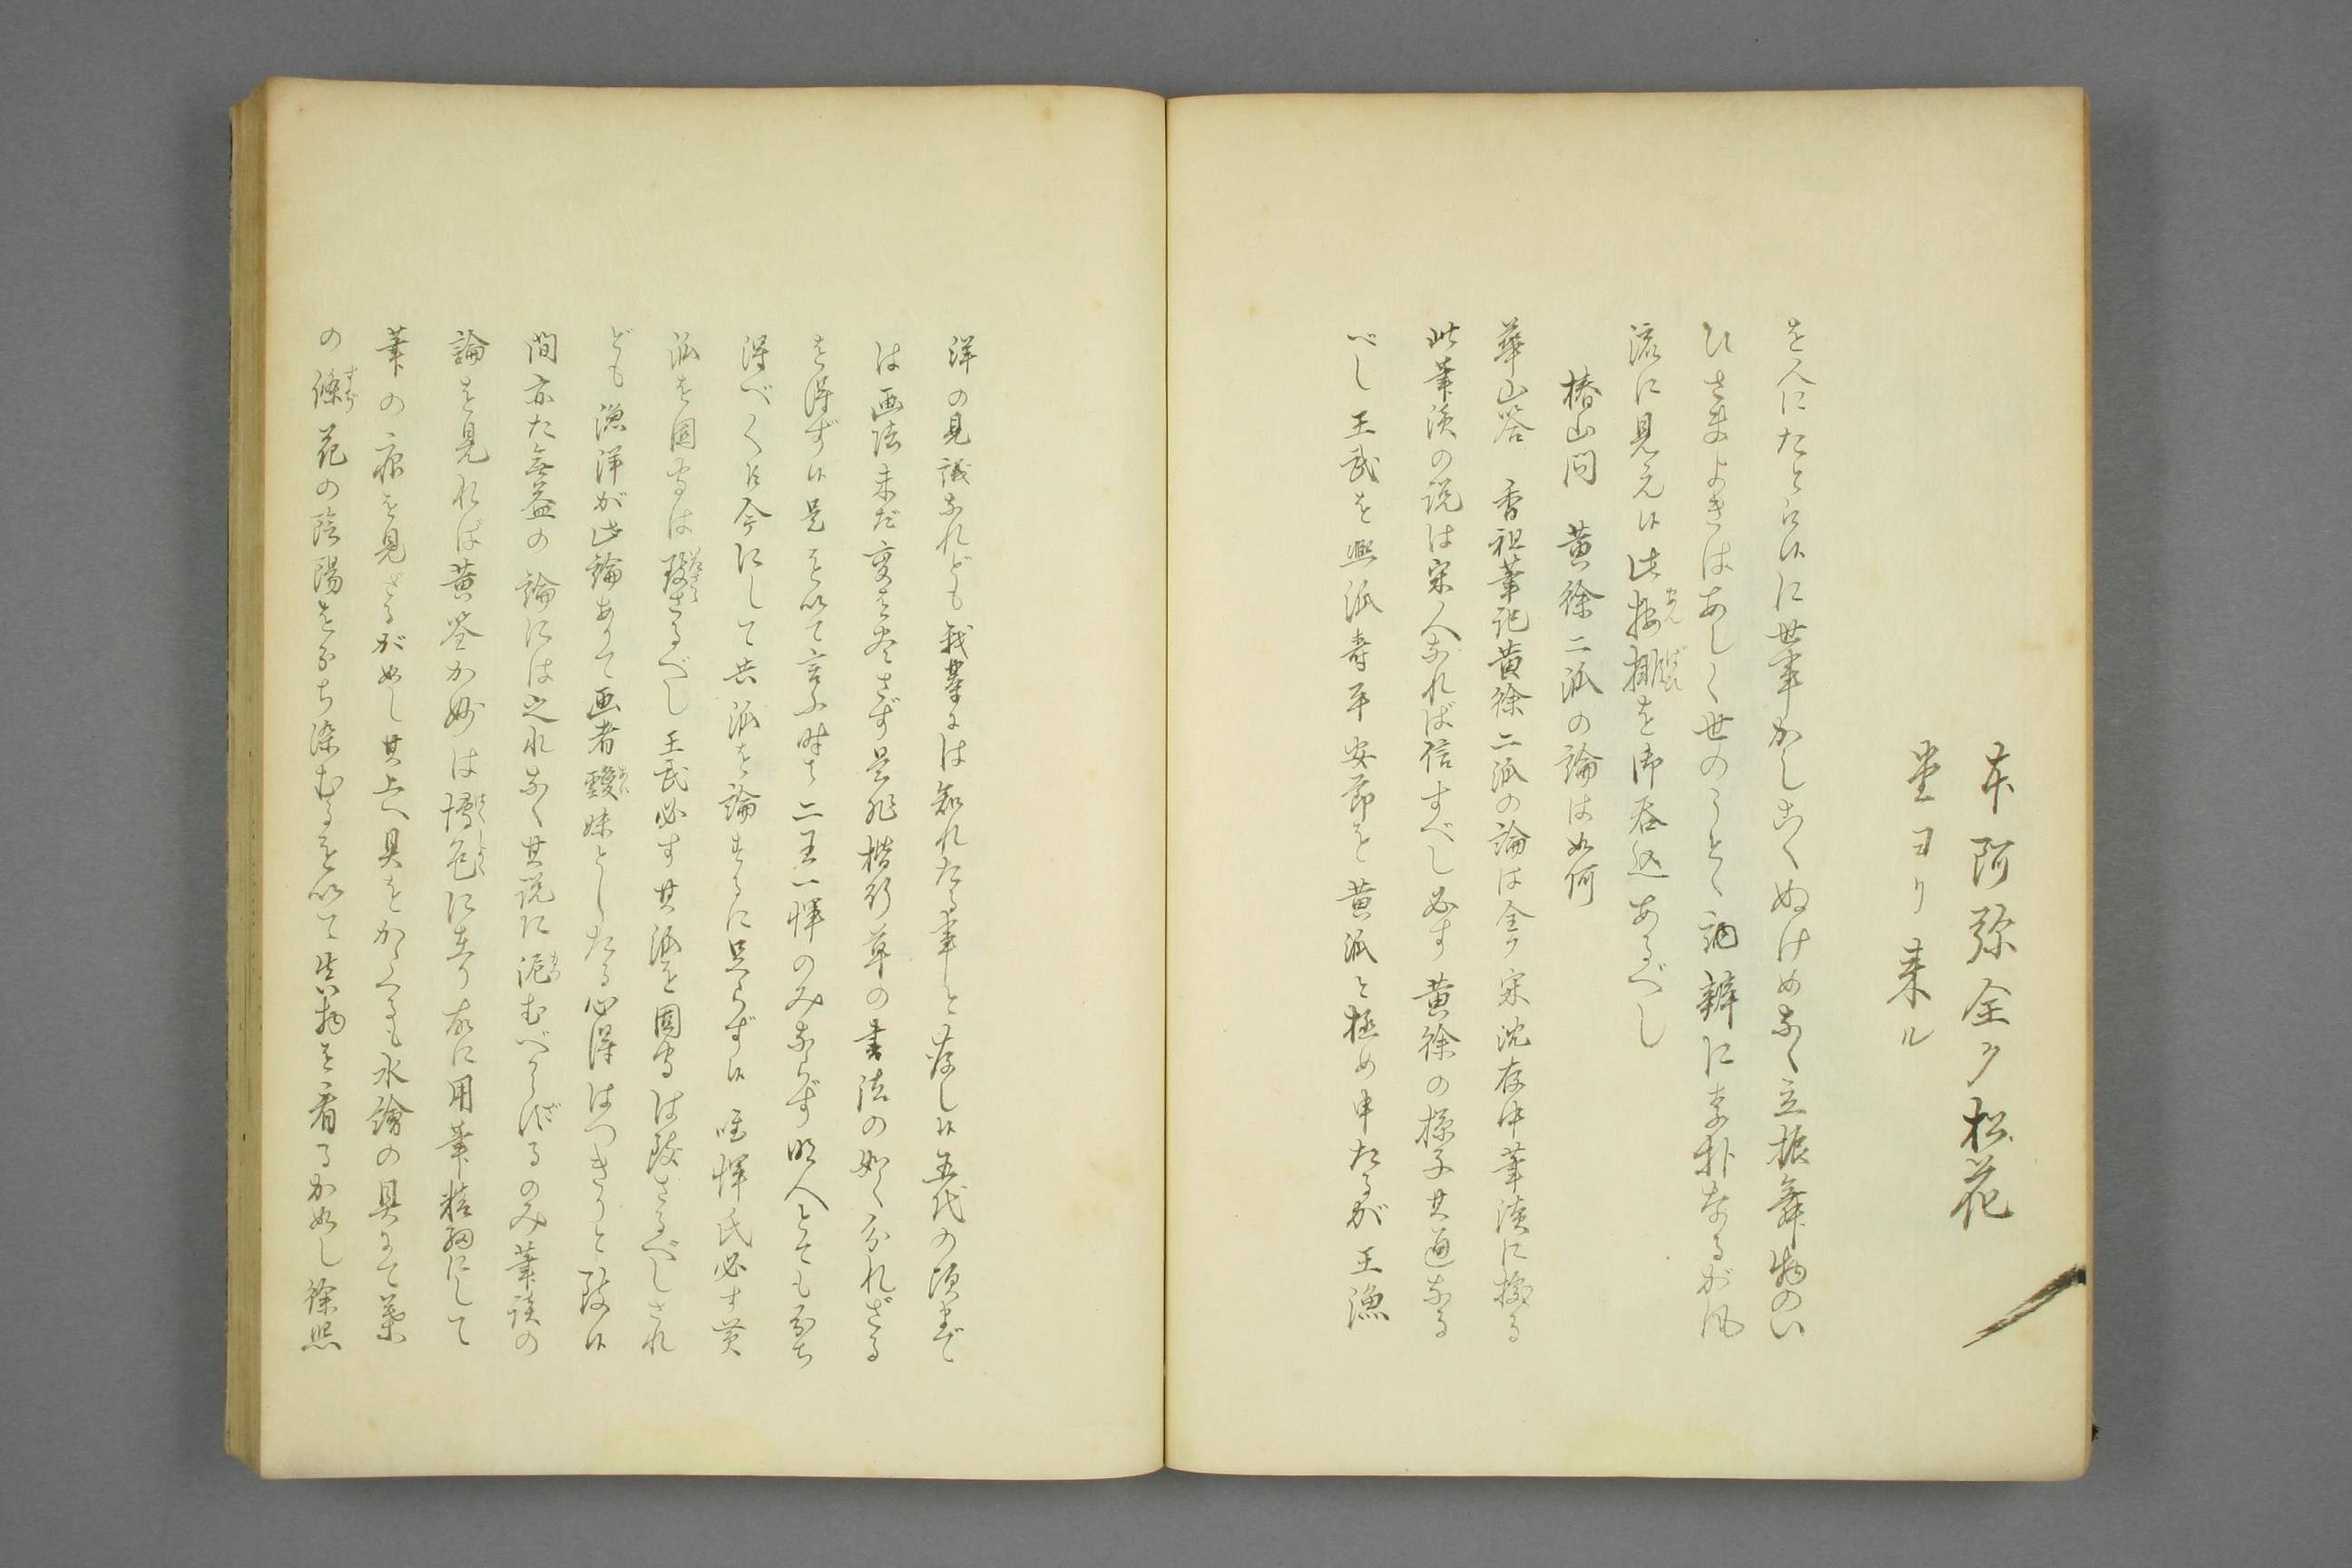 本阿弥全ク松花
堂ヨリ来ル
を人にたとら候に世事かしこくぬけめなく立振舞物のい
ひさまよきはあしく世のうとく訥辨に素朴なるが風
流に見え候此按排を御呑込あるべし
椿山問　黄徐二派の論は如何
華山答　香祖筆記黄徐二派の論は全ク宋沈存中筆談に據る
此筆談の説は宋人なれば信すべし必す黄徐の様子其通なる
べし王武を熙派壽平安節を黄派と極め申たるが王漁
洋の見識なれども我輩には知れたる事と存し候五代の頃まで
は画法未だ変を尽さず是非楷行草の書法の如く分れざる
を得ず候是を以て言ふ時は二王一惲のみならず明人とても分ち
得べく候今にして其派を論するに足らず候　唯惲氏必す黄
派を固守は致さるべし王武必す其派を固守は致さるべしされ
ども漁洋が此論ありて画者曖昧としたる心得はつきりと致候
間亦た無益の論には之れなく其説に泥むべからざるのみ筆談の
論を見れば黄筌か妙は傅色に在り故に用筆精細にして
筆の痕を見ざるが如し其上へ具をかくるも水繪の具にて葉
の條花の陰陽を分ち染むるを以て生物を看るか如し徐熙